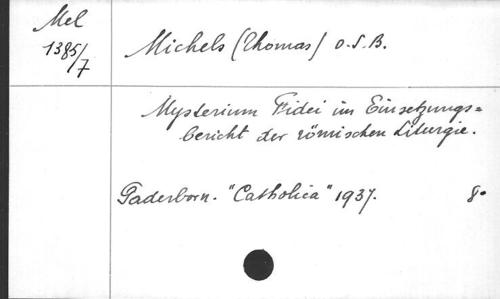 Mel
1385/7
Michels (Thomas) O.S.B.
Mysterium Fidei im Einsetzungs=
bericht der römischen Liturgie.
Paderborn. "Catholica" 1937. 8°